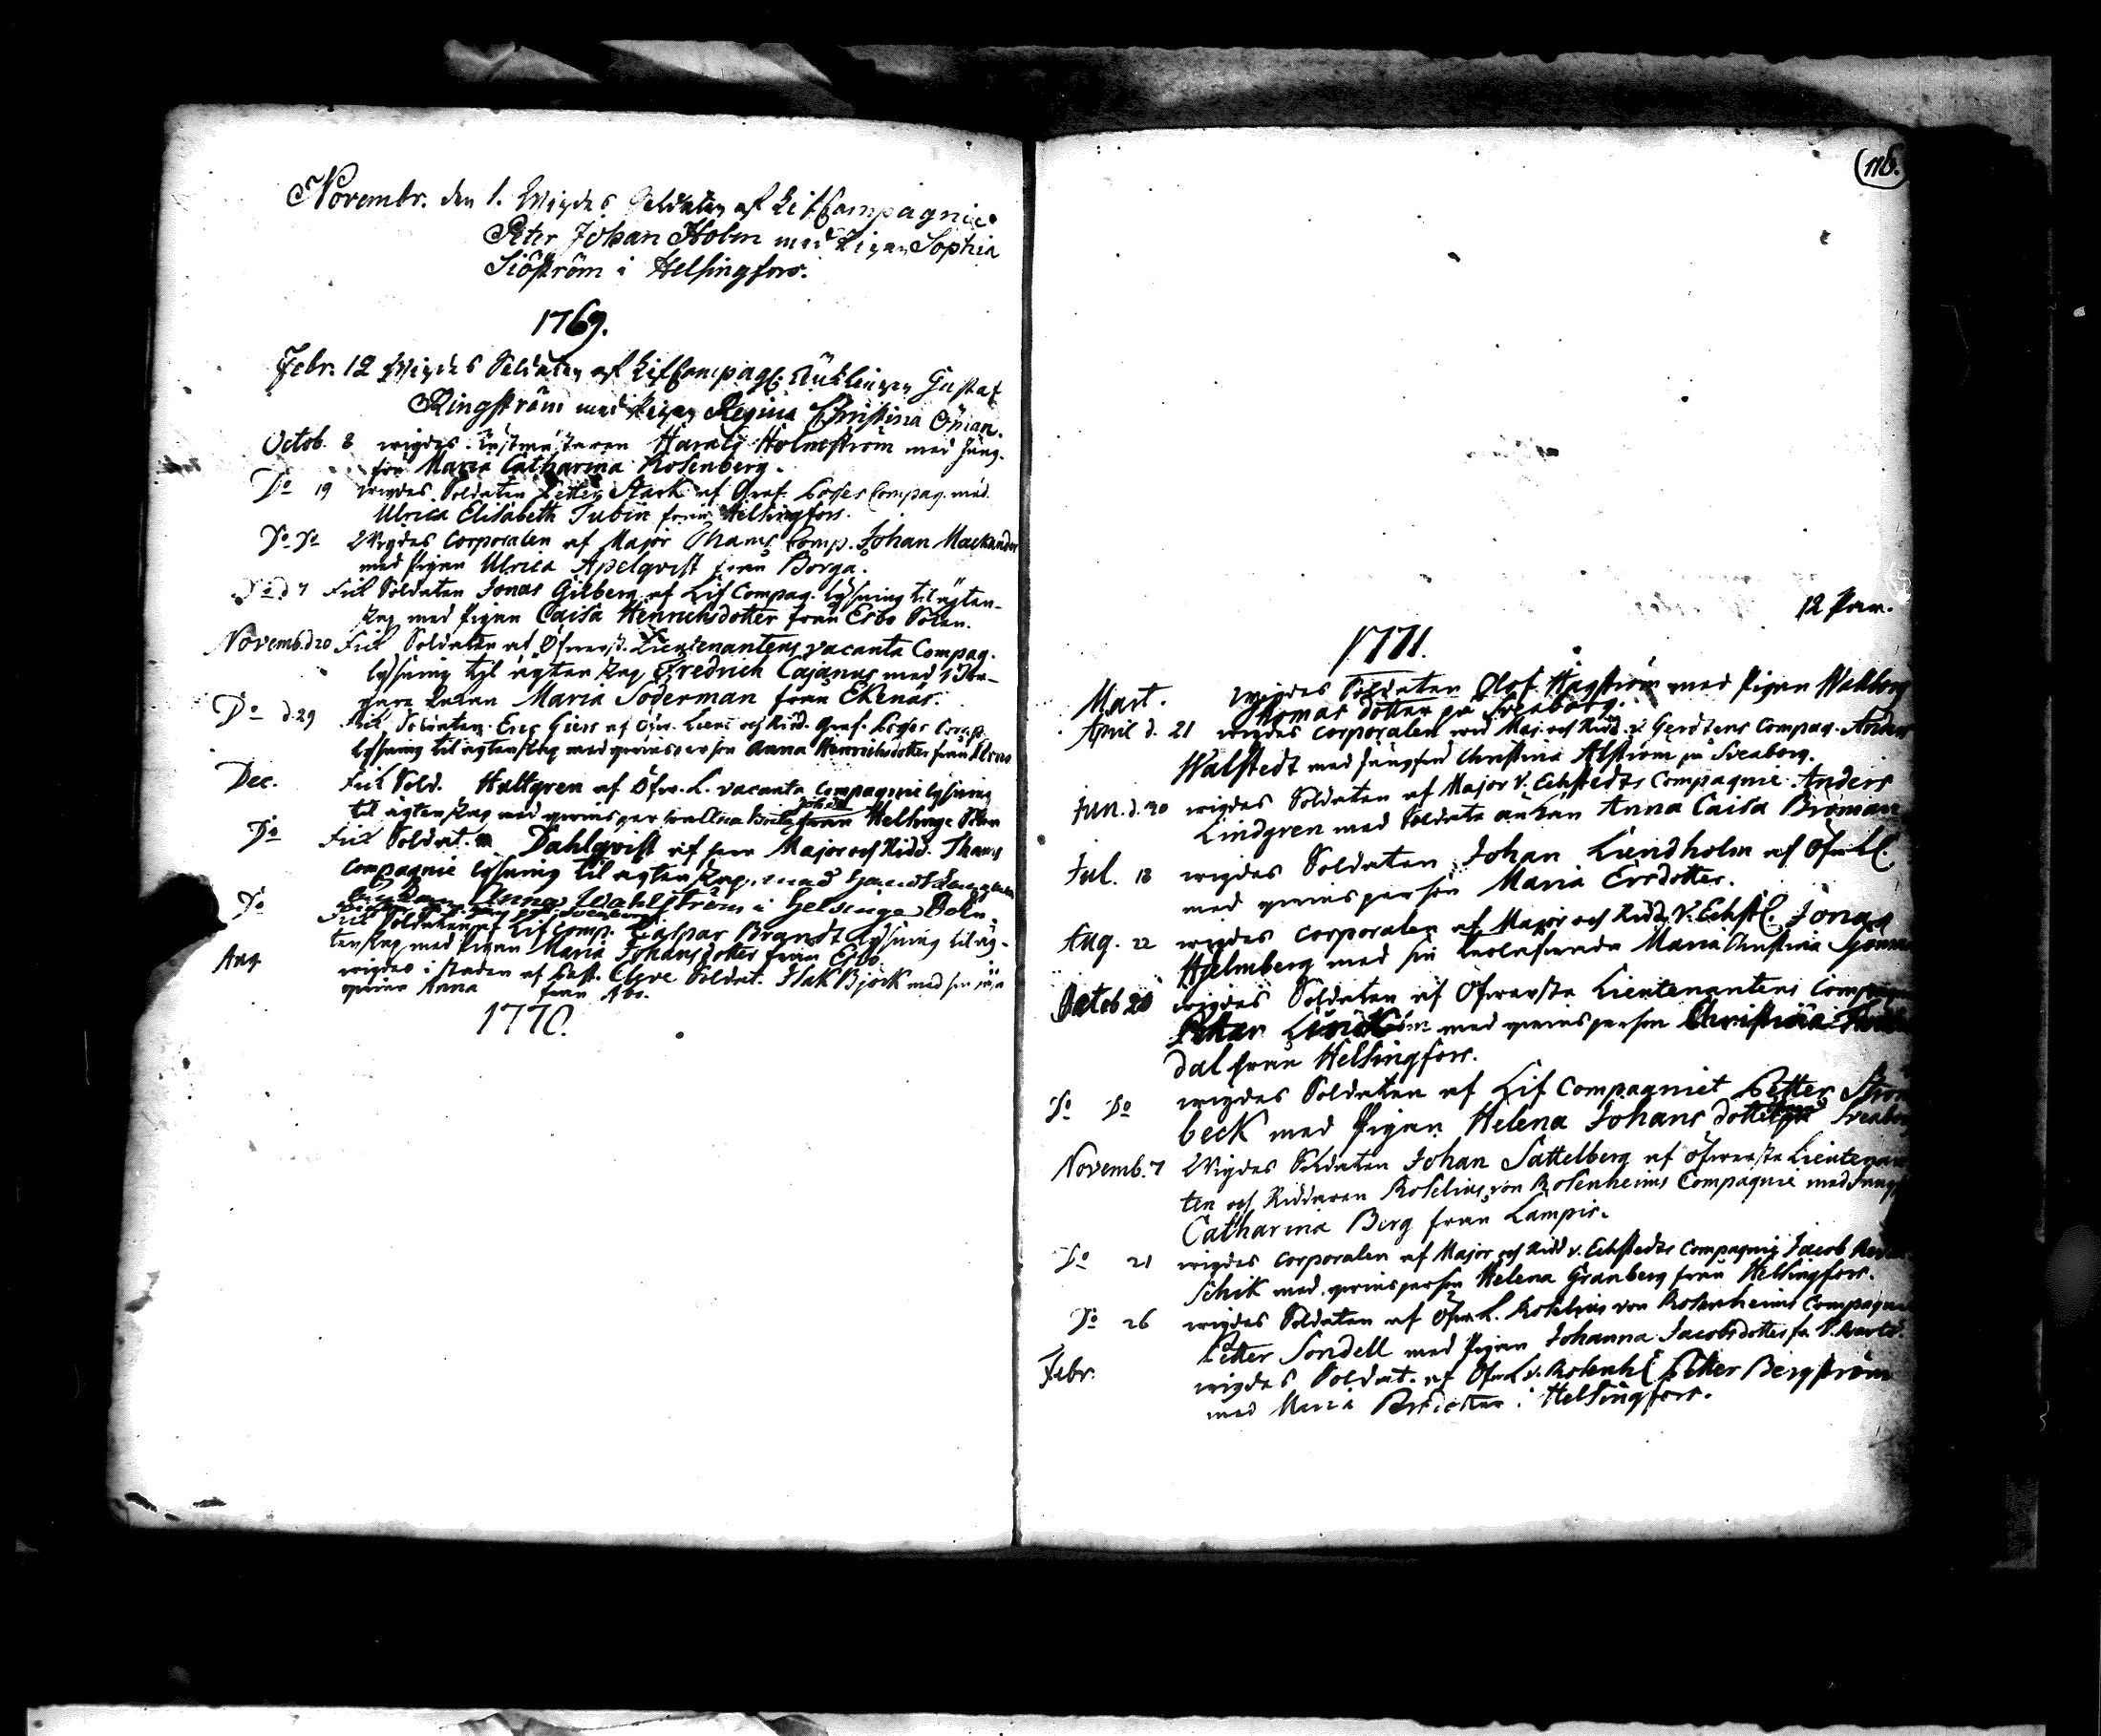 Novembr. den 1. Wigdes Soldaten af Lif Compagnie
Peter Johan Holm med Pigan Sophia
Siöström i Helsingfors.
1769.
Febr. 12 Wigdes Soldaten af Lif Compagn: Gustaf
Ringström med Pigan Regina Christina Öman.
Octob. 8 wigdes Holmström med Jung-
fru Maria Catharina Rosenberg.
Do 19 wigdes Soldaten Petter Stark af Gref. Compag. med
Ulrica Elisabeth Tubin från Helsingfors.
Do Do Wigdes Corporalen af Major Thams Comp. Johan Mackander
med Pigan Ulrica Apelqvist från Borga.
Do d 7 Fick Soldaten Jonas Gilberg af Lif Compag. lysning til ägten-
skap med Pigan Caisa Henrichsdotter från Esbo Soken.
Novemb. d 20 Fick Soldaten af Öfwerst. Lieutenantens vacanta Compag.
lysning til ägtenskap Fredrich Cajanus med
Maria Söderman från Ekenäs.
Do d. 29 Fick Soldaten Eric af Öfw. Lieut och Ridd. Gref. Comp.
lysning til ägtenskap med qwinsperson Anna Henrichsdotter från
Dec. Fick Sold. Hultgren af Öfw. L. vacanta Compagnie lysning
til ägtenskap med qwinsperson Brita från Helsinge Sokn
Do Fick Soldat. Dahlqvist af herr Major och Ridd. Thams
Compagnie lysning til ägtenskap, med
Enkan Anna Wahlström i Helsinge Sokn.
Do Fick Soldaten af Lif Comp. Caspar Brandt lysning til äg-
tenskap med Pigan Maria Johansdotter från Esbo.
Aug. wigdes i staden af Past. Cleve Soldat. Isak Björk med sin
qwinna Anna från Abo.
1770.
118.
12 Par.
1771.
Mart. wigdes Soldaten Olof Hagström med Pigan Walborg
Thomas dotter på Sveaborg.
April d. 21 wigdes corporalen wid Maj. och Ridd. v. Gerdtens Compag. Anders
Walstedt med Jungfru Christina Alström på Sveaborg.
Jun. d. 30 wigdes Soldaten af Major v. Echstedts Compagnie Anders
Lindgren med Soldate änkan Anna Caisa Broman
Jul. 18 wigdes Soldaten Johan Lundholm af Öfw. L.
med qwinsperson Maria Ersdotter.
Aug. 22 wigdes corporalen af Major och Ridd. v. Echst. Jonas
Hjelmberg med sin trolofwade Maria Christina
Octob 20 wigdes Soldaten af Öfwerste Lieutenantens Compagnie
Petter med qwinsperson Christina
dal från Helsingfors.
Do Do wigdes Soldaten af Lif Compagniet Petter Ström
beck med Pigan Helena Johans dotter på Sveaborg
Novemb. 7 Wigdes Soldaten Johan Sattelberg af Öfwerste Lieutenan
ten och Riddaren Roselius von Rosenheims Compagnie med Jungf
Catharina Berg från Lampis.
Do 21 wigdes corporalen af Major och Ridd v. Echstedts Compagnie Jacob
Schik med qwinsperson Helena Granberg från Helsingfors.
Do 26 wigdes Soldaten af Öfw. L. Roselius von Rosenheims Compagnie
Petter Sondell med Pigan Johanna Jacobsdotter fr.
Febr. wigdes Soldat. af Öfw. L. v. Rosenh. Petter Bergström
med Maria i Helsingfors.